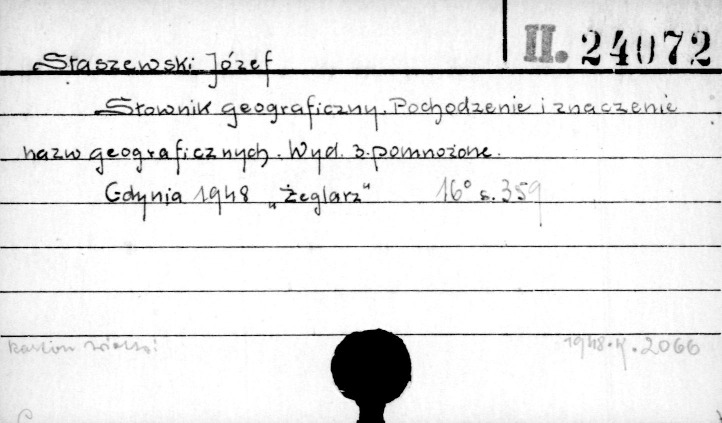 II. 24072
Staszewski Józef
Słownik geograficzny. Pochodzenie i znaczenie
nazw geograficznych. Wyd. 3. pomnożone.
Gdynia 1948 „Żeglarz" 16° s. 359
1948. K. 2066